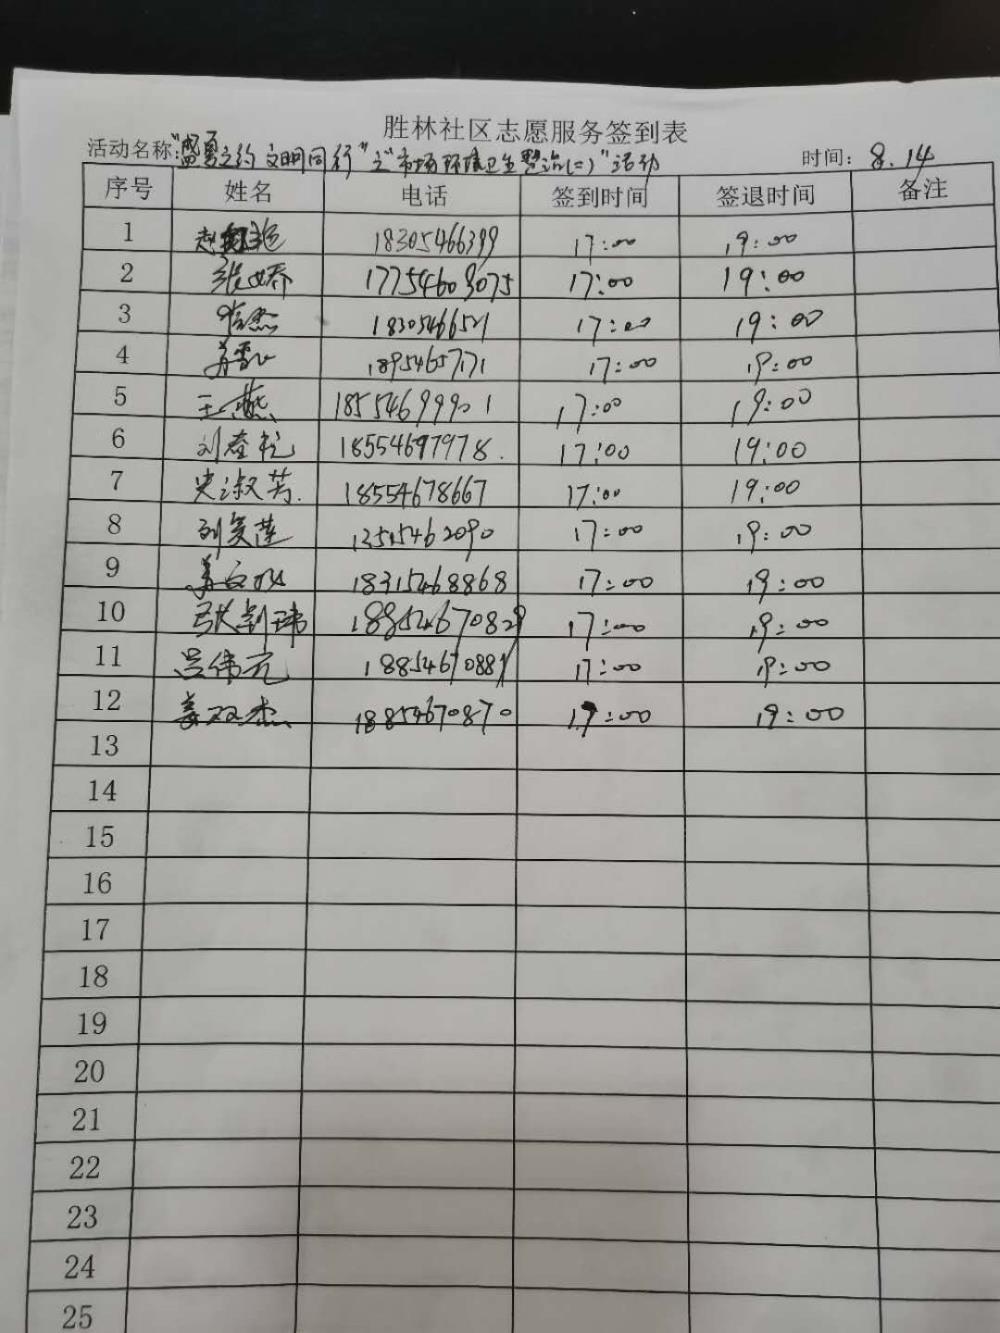 胜林社区志愿服务签到表
活动名称:"盛夏之约 文明同行"之"市场环境卫生整治(二)"活动 时间: 8.14
序号 姓名 电话 签到时间 签退时间 备注
1 18305466399 17:00 19:00
2 张娇 17754603075 17:00 19:00
3 18305466521 17:00 19:00
4 18954657171 17:00 19:00
5 王燕 18554699901 17:00 19:00
6 刘春艳 18554697978. 17:00 19:00
7 史淑芳. 18554678667 17:00 19:00
8 刘爱莲 13515462090 17:00 19:00
9 18315468868 17:00 19:00
10 18854670829 17:00 19:00
11 吕伟元 18854670881 17:00 19:00
12 姜双杰 18854670870 17:00 19:00
13
14
15
16
17
18
19
20
21
22
23
24
25